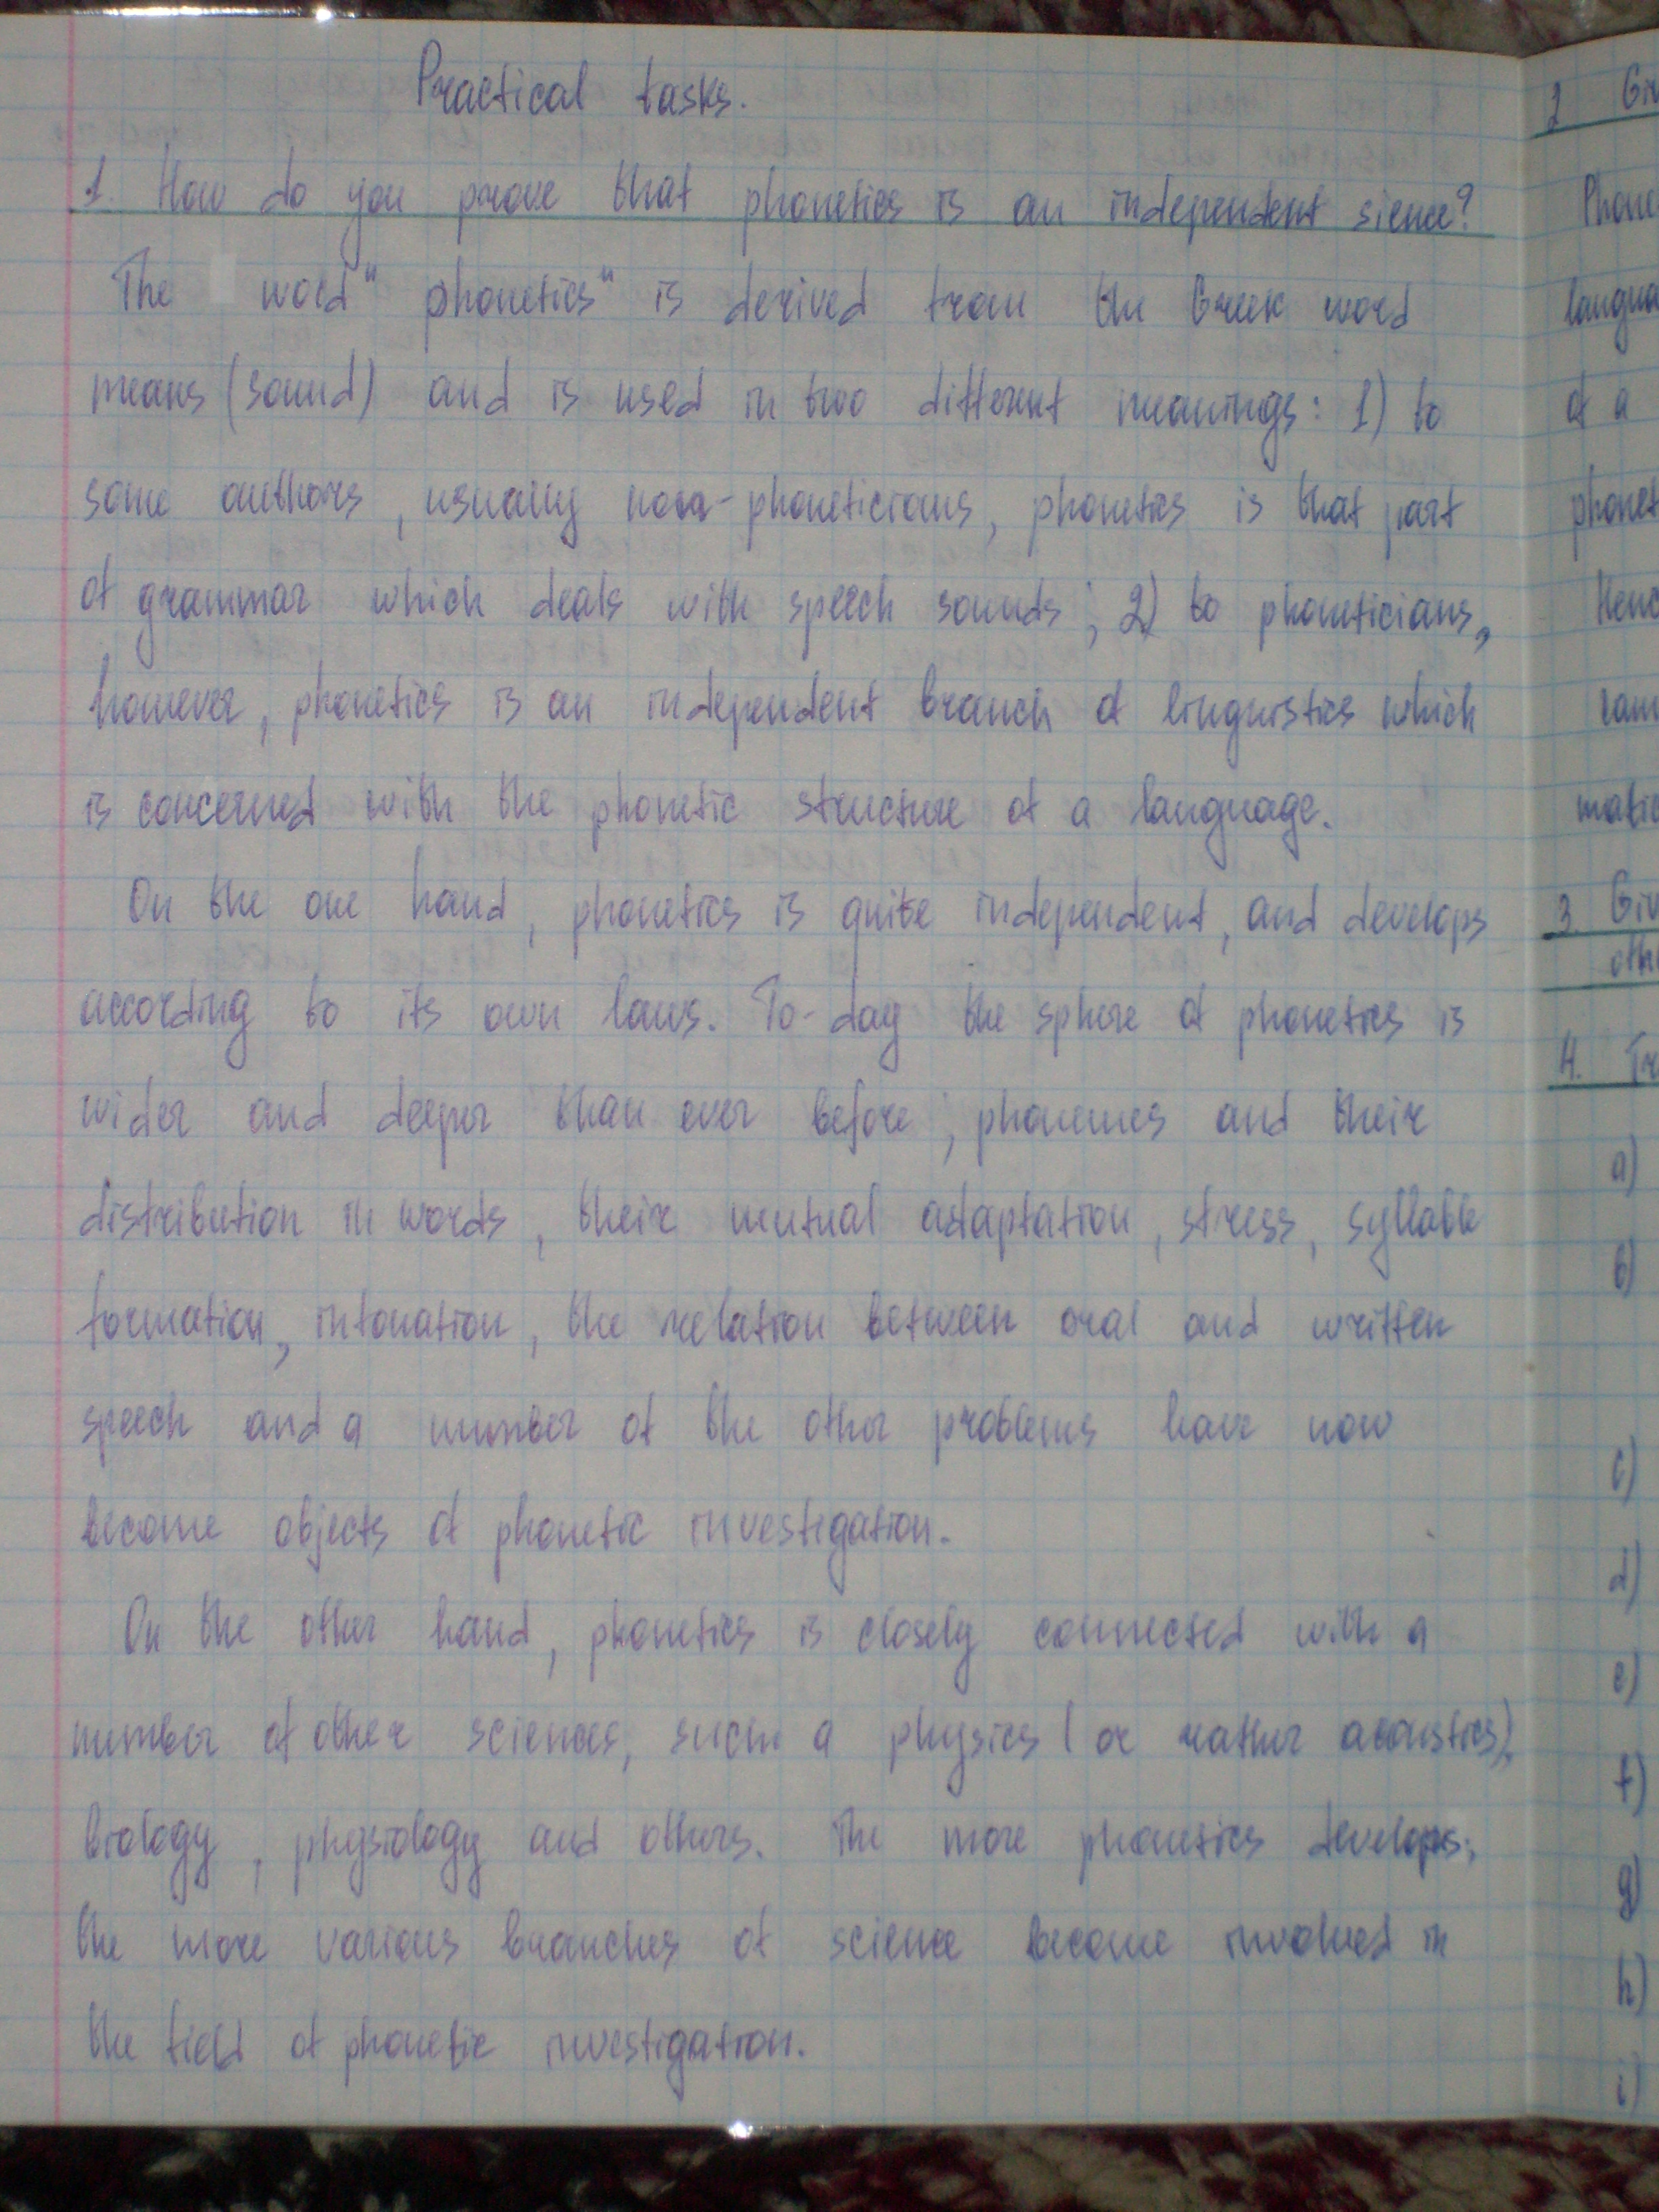 Practical tasks.
1. How do you prove that phonetics is an independent sience?
The word "phonetics" is derived from the Greek word
means (sound) and is used in two different meanings: 1) to
some authors, usually non-phoneticians, phonetics is that part
of grammar which deals with speech sounds; 2) to phoneticians,
however, phonetics is an independent branch of linguistics which
is concerned with the phonetic structure of a language.
On the one hand, phonetics is quite independent, and develops
according to its own laws. To-day the sphere of phonetics is
wider and deeper than ever before; phonemes and their
distribution in words, their mutual adaptation, stress, syllable
formation, intonation, the relation between oral and written
speech and a number of the other problems have now
become objects of phonetic investigation.
On the other hand, phonetics is closely connected with a
number of other sciences, such a physics (or rather acoustics),
biology, physiology and others. The more phonetics develops,
the more various branches of science become involved in
the field of phonetic investigation.
2 Giv
Phone
langua
of a
phonet
Henc
matic
3. Giv
oth
4. Tr
a)
b)
c)
d)
e)
f)
g)
h)
i)